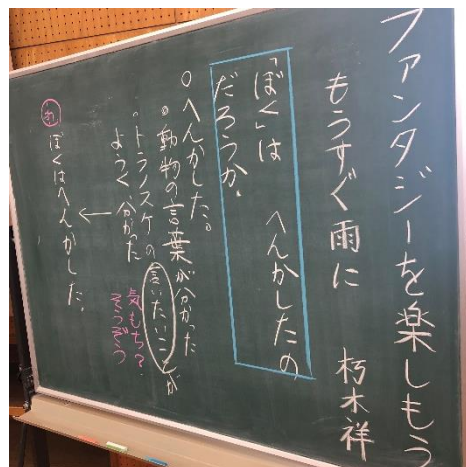 ファンタジーを楽しもう
もうすぐ雨に　朽木祥
「ぼく」は　へんかしたの
だろうか。
○へんかした。
○動物の言葉が分かった
・トラノスケの言いたいことが
ようく分かった
気もち？
そうぞう
←
ぼくはへんかした。